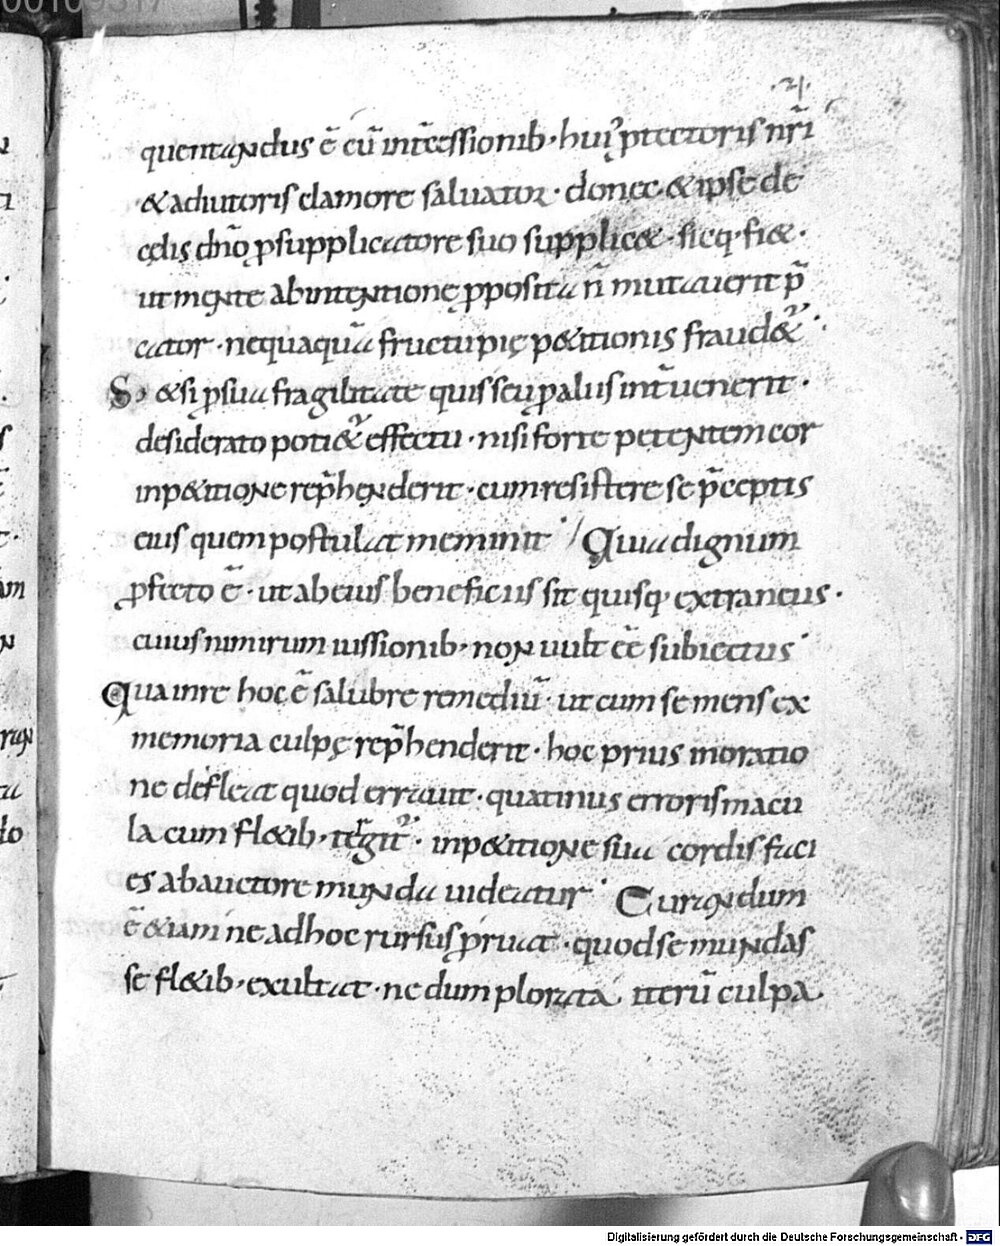 00109317
21.
quentandus ē cū int̄cessionib· hui᷒ ꝓtectoris nr̄i
& adiutoris clamore saluator· donec & ipse de
cęlis dn̄o ꝓ supplicatore suo supplic&· sicq· fi&·
ut mente ab intentione ꝓposita n̄ mutauerit p̄
cator· nequaquā fructu pię p&itionis fraud&᷑·
S; & si ꝑ sua fragilitate quis seu ꝑ alius int̄uenerit·
desiderato poti&᷑ effectu· nisi forte petentem cor
in p&itione rep̄henderit· cum resistere se p̄ceptis
eius quem postulat meminit· / Quia dignum
ꝓfecto ē· ut ab eius beneficiis sit quisq· extraneus·
cuius nimirum iussionib· non uult eē subiectus·
Qua in re hoc ē salubre remediū· ut cum se mens ex
memoria culpę rep̄henderit· hoc prius in oratio
ne defleat quod errauit· quatinus erroris macu
la cum fl&ib· tergit᷑· in p&itione sua cordis faci
es ab auctore munda uideatur· Curandum
ē &iam ne ad hoc rursus ꝓruat· quod se mundas
se fl&ib· exultat· ne dum plorata iterū culpa
Digitalisierung gefördert durch die Deutsche Forschungsgemeinschaft - DFG